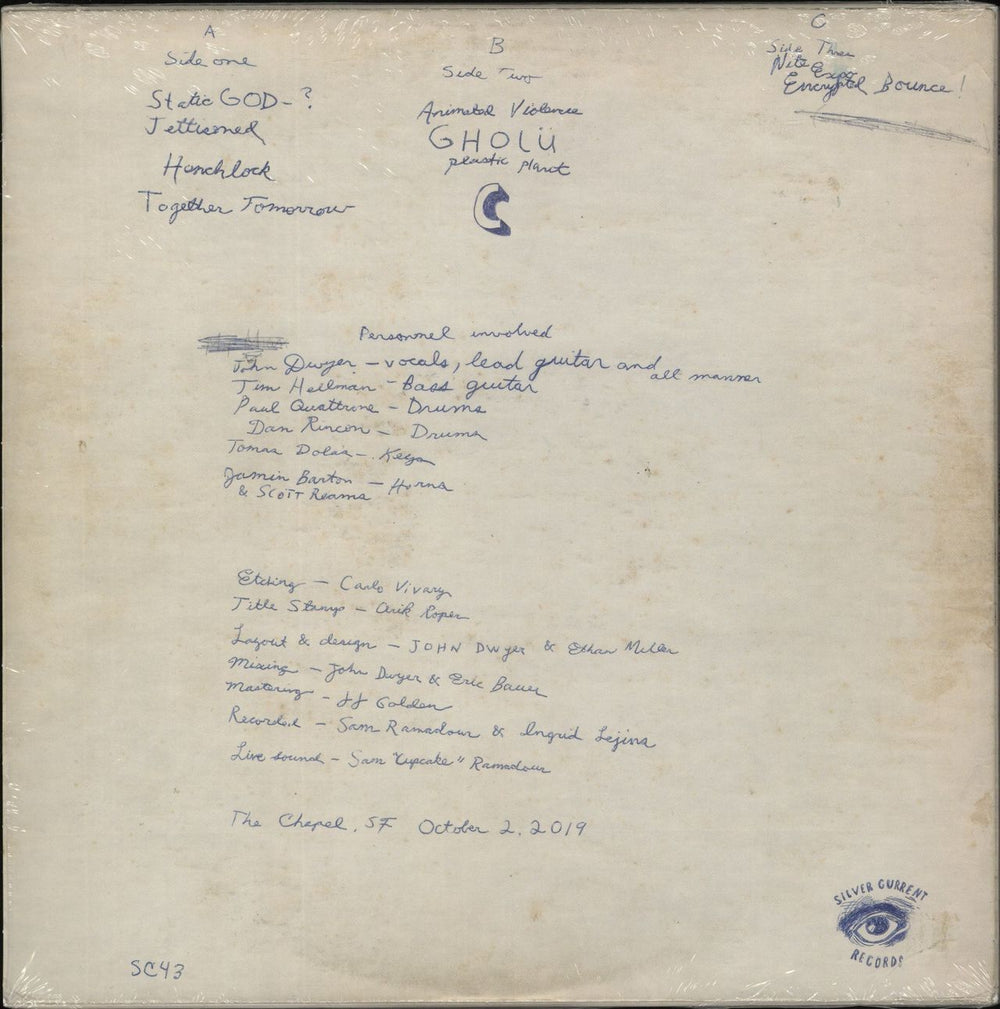 A
Side one
Static GOD - ?
Jettisoned
Henchlock
Together Tomorrow
B
Side Two
Animated Violence
GHOLÜ
plastic plant
C
Side Three
Nite Expo
Encrypted Bounce!
Personnel involved
John Dwyer - vocals, lead guitar and all manner
Tim Hellman - Bass guitar
Paul Quattrone - Drums
Dan Rincon - Drums
Tomas Dolas - Keys
Jamin Barton - Horns
& SCOTT Reams
Etching - Carlo Vivary
Title Stamp - Arik Roper
Layout & design - JOHN Dwyer & Ethan Miller
Mixing - John Dwyer & Eric Bauer
Mastering - JJ Golden
Recorded - Sam Ramadour & Ingrid Lejins
Live sound - Sam "Cupcake" Ramadour
The Chapel, SF October 2, 2019
SILVER CURRENT
RECORDS
SC43